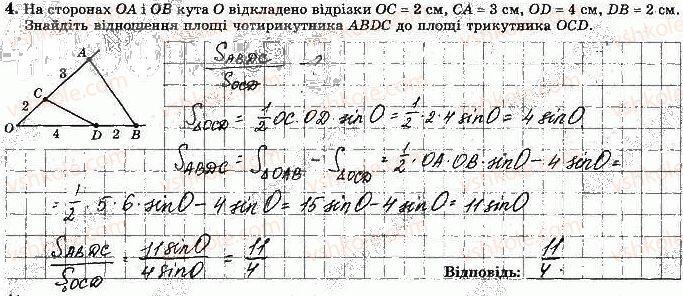 4. На сторонах OA і OB кута O відкладено відрізки OC = 2 см, CA = 3 см, OD = 4 см, DB = 2 см.
Знайдіть відношення площі чотирикутника ABDC до площі трикутника OCD.
S_ABDC / S_OCD - ?
A
3
C
2
O 4 D 2 B
S_ΔOCD = 1/2 OC · OD · sin O = 1/2 · 2 · 4 sin O = 4 sin O
S_ABDC = S_ΔOAB - S_ΔOCD = 1/2 · OA · OB · sin O - 4 sin O =
= 1/2 · 5 · 6 · sin O - 4 sin O = 15 sin O - 4 sin O = 11 sin O
S_ABDC / S_OCD = 11 sin O / 4 sin O = 11/4
Відповідь: 11/4.